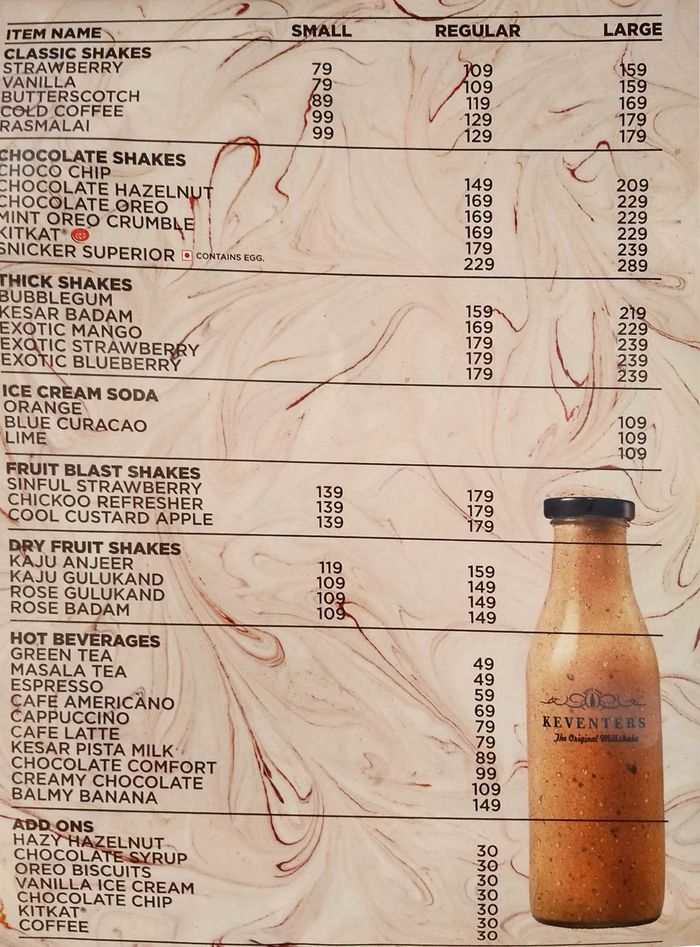 ITEM NAME SMALL REGULAR LARGE
CLASSIC SHAKES
STRAWBERRY 79 109 159
VANILLA 79 109 159
BUTTERSCOTCH 89 119 169
COLD COFFEE 99 129 179
RASMALAI 99 129 179
CHOCOLATE SHAKES
CHOCO CHIP 149 209
CHOCOLATE HAZELNUT 169 229
CHOCOLATE OREO 169 229
MINT OREO CRUMBLE 169 229
KITKAT® 179 239
SNICKER SUPERIOR CONTAINS EGG. 229 289
THICK SHAKES
BUBBLEGUM 159 219
KESAR BADAM 169 229
EXOTIC MANGO 179 239
EXOTIC STRAWBERRY 179 239
EXOTIC BLUEBERRY 179 239
ICE CREAM SODA
ORANGE 109
BLUE CURACAO 109
LIME 109
FRUIT BLAST SHAKES
SINFUL STRAWBERRY 139 179
CHICKOO REFRESHER 139 179
COOL CUSTARD APPLE 139 179
DRY FRUIT SHAKES
KAJU ANJEER 119 159
KAJU GULUKAND 109 149
ROSE GULUKAND 109 149
ROSE BADAM 109 149
HOT BEVERAGES
GREEN TEA 49
MASALA TEA 49
ESPRESSO 59
CAFE AMERICANO 69
CAPPUCCINO 79
CAFE LATTE 79
KESAR PISTA MILK 89
CHOCOLATE COMFORT 99
CREAMY CHOCOLATE 109
BALMY BANANA 149
KEVENTERS
The Original Milkshake
ADD ONS
HAZY HAZELNUT 30
CHOCOLATE SYRUP 30
OREO BISCUITS 30
VANILLA ICE CREAM 30
CHOCOLATE CHIP 30
KITKAT® 30
COFFEE 30